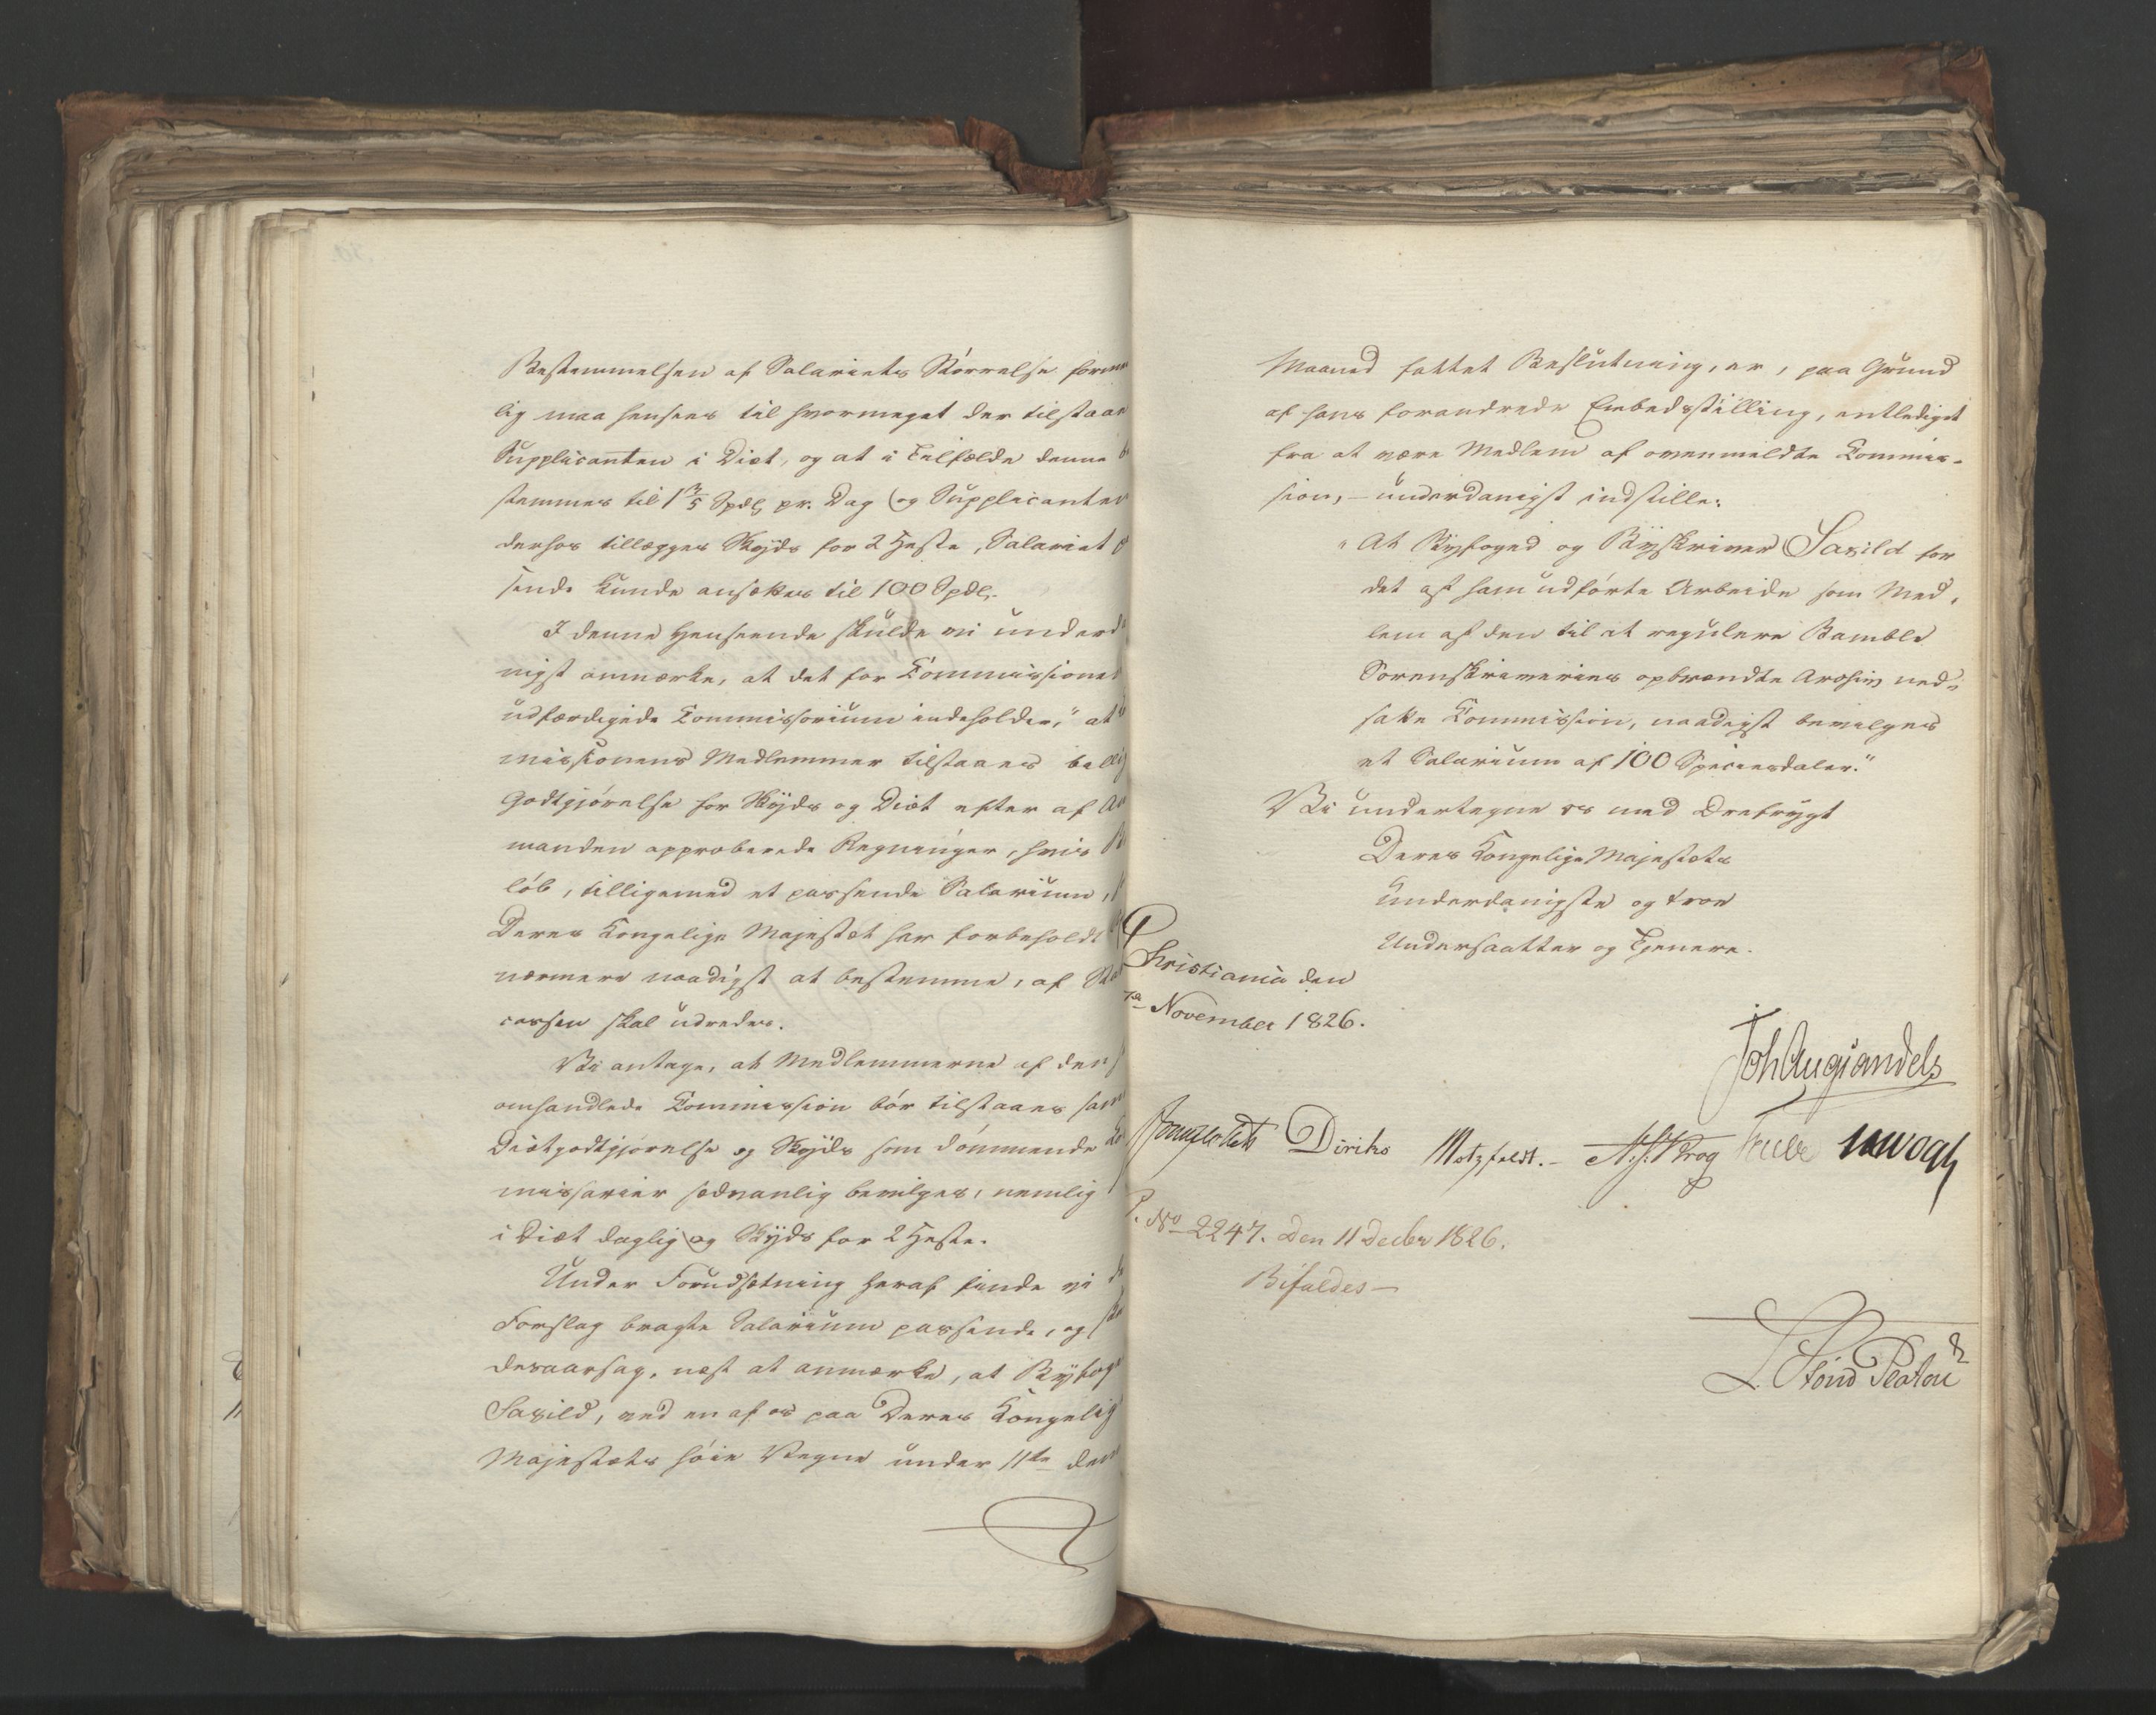 Bestemmelsen af Salariets Størrelse
lig maa hensees til hvormeget der tilstaaes
Supplicanten i Diæt, og at i Tilfælde denne be
stemmes til 1 3/5 Spdlr pr. Dag og Supplicanten
derhos tillægges Skyds for 2 Heste, Salariet
kunde ansættes til 100 Spdlr.
I denne Henseende skulde vi underda
nigst anmærke, at det for Commissionen
udfærdigede Commissorium indeholder, "at
missionens Medlemmer tilstaaes billig
Godtgjørelse for Skyds og Diæt efter af
manden approberede Regninger, hvis
løb, tilligemed et passende Salarium,
Deres Kongelige Majestæt har forbeholdt
nærmere naadigst at bestemme, af
cassen skal udredes.
Vi antage, at Medlemmerne af den
omhandlede Commission bør tilstaaes sam
Diætgodtgjørelse og Skyds som dømmende Co
missarier sædvanlig bevilges, nemlig
i Diæt daglig og Skyds for 2 Heste.
Under Forudsætning heraf finde vi
Forslag bragte Salarium passende, og
desaarsag, næst at anmærke, at Byfoge
Saxild, ved en af os paa Deres Kongelig
Majestæts høie Vegne under 11te den
Maaned fattet Beslutning, er, paa Grund
af hans forandrede Embedsstilling, entlediget
fra at være Medlem af ovenmeldte Commis-
sion, – underdanigst indstille:
"At Byfoged og Byskriver Saxild for
det af ham udførte Arbeide som Med-
lem af den til at regulere Bamble
Sorenskriveries opbrændte Archiv ned-
satte Commission, naadigst bevilges
et Salarium af 100 Speciesdaler."
Vi undertegne os med Ærefrygt
Deres Kongelige Majestæts
underdanigste og troe
Undersaatter og Tjenere.
Christiania den
November 1826.
Joh Aug Sandels
Diriks Motzfeldt. Krog
P. No 2247. Den 11 Decbr 1826.
Bifaldes –